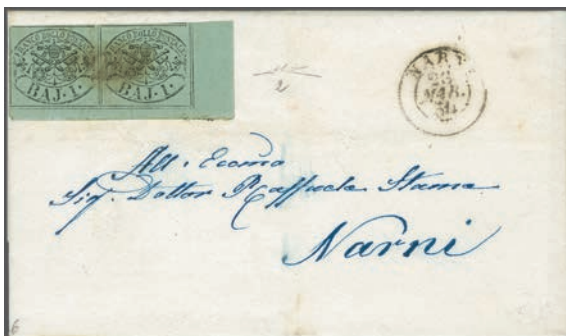 FRANCO BOLLO POSTALE FRANCO BOLLO POSTALE
BAJ. 1. BAJ. 1.
2
NARNI
23
MAR.
All'
Sig. Dottor Raffaele Stame
Narni
6